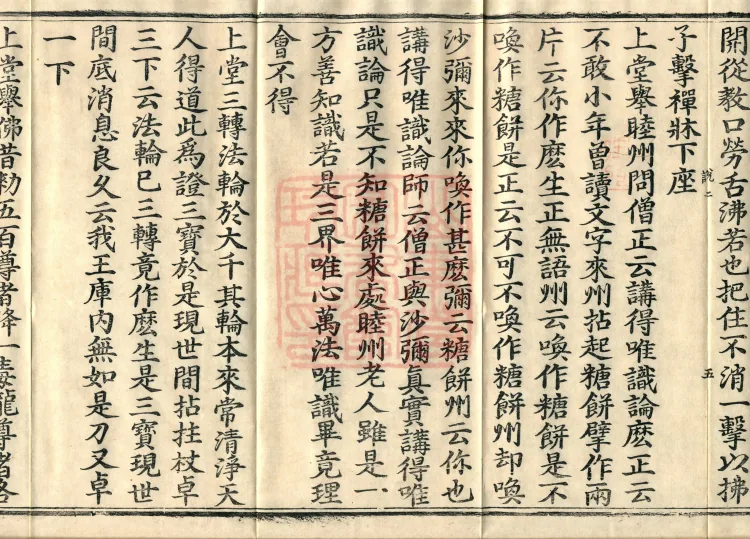 開從教口勞舌沸若也把住不消一擊以拂
子擊禪牀下座
說二
五
上堂舉睦州問僧正云講得唯識論麽正云
不敢小年曾讀文字來州拈起糖餅擘作兩
片云你作麽生正無語州云喚作糖餅是不
喚作糖餅是正云不可不喚作糖餅州却喚
沙彌來來你喚作甚麽彌云糖餅州云你也
講得唯識論師云僧正與沙彌眞實講得唯
識論只是不知糖餅來處睦州老人雖是一
方善知識若是三界唯心萬法唯識畢竟理
會不得
上堂三轉法輪於大千其輪本來常清淨天
人得道此爲證三寶於是現世間拈拄杖卓
三下云法輪巳三轉竟作麽生是三寶現世
間底消息良久云我王庫內無如是刀又卓
一下
上堂舉佛昔勑五百尊者降一毒龍尊者各